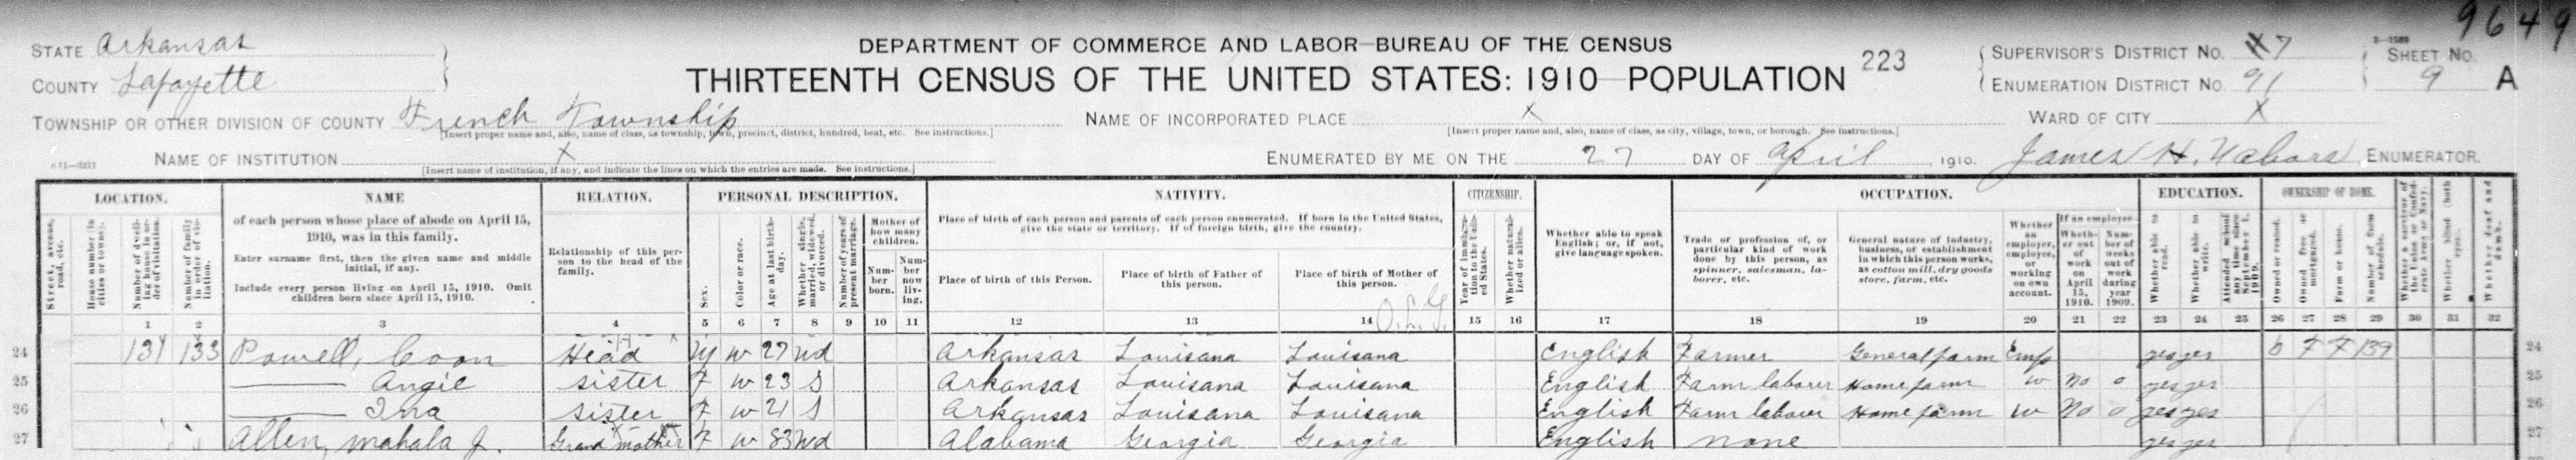 9649
STATE Arkansas
COUNTY Lafayette
DEPARTMENT OF COMMERCE AND LABOR—BUREAU OF THE CENSUS
THIRTEENTH CENSUS OF THE UNITED STATES: 1910—POPULATION
223
SUPERVISOR'S DISTRICT NO. 7
ENUMERATION DISTRICT NO. 91
SHEET NO.
9 A
TOWNSHIP OR OTHER DIVISION OF COUNTY French Township
[Insert proper name and, also, name of class, as township, town, precinct, district, hundred, beat, etc. See instructions.]
NAME OF INCORPORATED PLACE X
[Insert proper name and, also, name of class, as city, village, town, or borough. See instructions.]
WARD OF CITY X
NAME OF INSTITUTION X
[Insert name of institution, if any, and indicate the lines on which the entries are made. See instructions.]
ENUMERATED BY ME ON THE 27 DAY OF April, 1910. James H. Nabors, ENUMERATOR.
LOCATION.
Street, avenue, road, etc.
House number (in cities or towns).
Number of dwelling house in order of visitation.
Number of family in order of visitation.
NAME
of each person whose place of abode on April 15, 1910, was in this family.
Enter surname first, then the given name and middle initial, if any.
Include every person living on April 15, 1910. Omit children born since April 15, 1910.
RELATION.
Relationship of this person to the head of the family.
PERSONAL DESCRIPTION.
Sex.
Color or race.
Age at last birthday.
Whether single, married, widowed, or divorced.
Number of years of present marriage.
Mother of how many children.
Number born.
Number now living.
NATIVITY.
Place of birth of each person and parents of each person enumerated. If born in the United States, give the state or territory. If of foreign birth, give the country.
Place of birth of this Person.
Place of birth of Father of this person.
Place of birth of Mother of this person.
CITIZENSHIP.
Year of immigration to the United States.
Whether naturalized or alien.
Whether able to speak English; or, if not, give language spoken.
OCCUPATION.
Trade or profession of, or particular kind of work done by this person, as spinner, salesman, laborer, etc.
General nature of industry, business, or establishment in which this person works, as cotton mill, dry goods store, farm, etc.
Whether an employer, employee, or working on own account.
If an employee—
Whether out of work on April 15, 1910.
Number of weeks out of work during year 1909.
EDUCATION.
Whether able to read.
Whether able to write.
Attended school any time since September 1, 1909.
OWNERSHIP OF HOME.
Owned or rented.
Owned free or mortgaged.
Farm or house.
Number of farm schedule.
Whether a survivor of the Union or Confederate Army or Navy.
Whether blind (both eyes).
Whether deaf and dumb.
1 2 3 4 5 6 7 8 9 10 11 12 13 14 15 16 17 18 19 20 21 22 23 24 25 26 27 28 29 30 31 32
24 131 133 Powell, Coon Head M W 27 Wd Arkansas Louisana Louisana English Farmer General farm Emp yes yes O F F 139 24
25 —— Angie Sister F W 23 S Arkansas Louisana Louisana English Farm laborer Home farm W No 0 yes yes 25
26 —— Ina Sister F W 21 S Arkansas Louisana Louisana English Farm laborer Home farm W No 0 yes yes 26
27 Allen, Mahala J. Grand mother F W 83 Wd Alabama Georgia Georgia English None yes yes 27